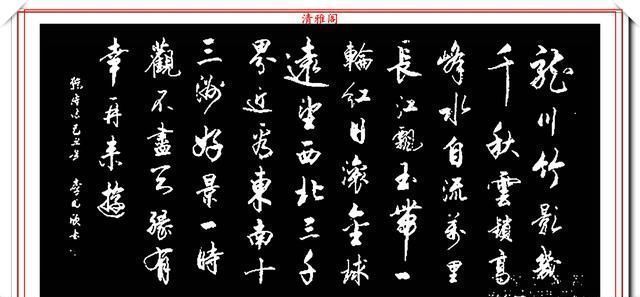 清雅阁
龍川竹影幾
千秋雲鎖高
峰水自流萬里
長江飄玉帶一
輪紅日滾金球
遠望西北三千
界近為東南十
三洲好景一時
觀不盡天緣有
幸再來遊
己丑